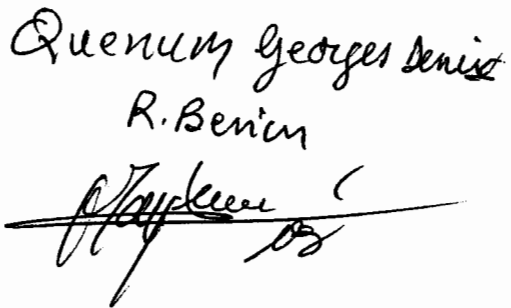 Quenum Georges Denis
R. Benin